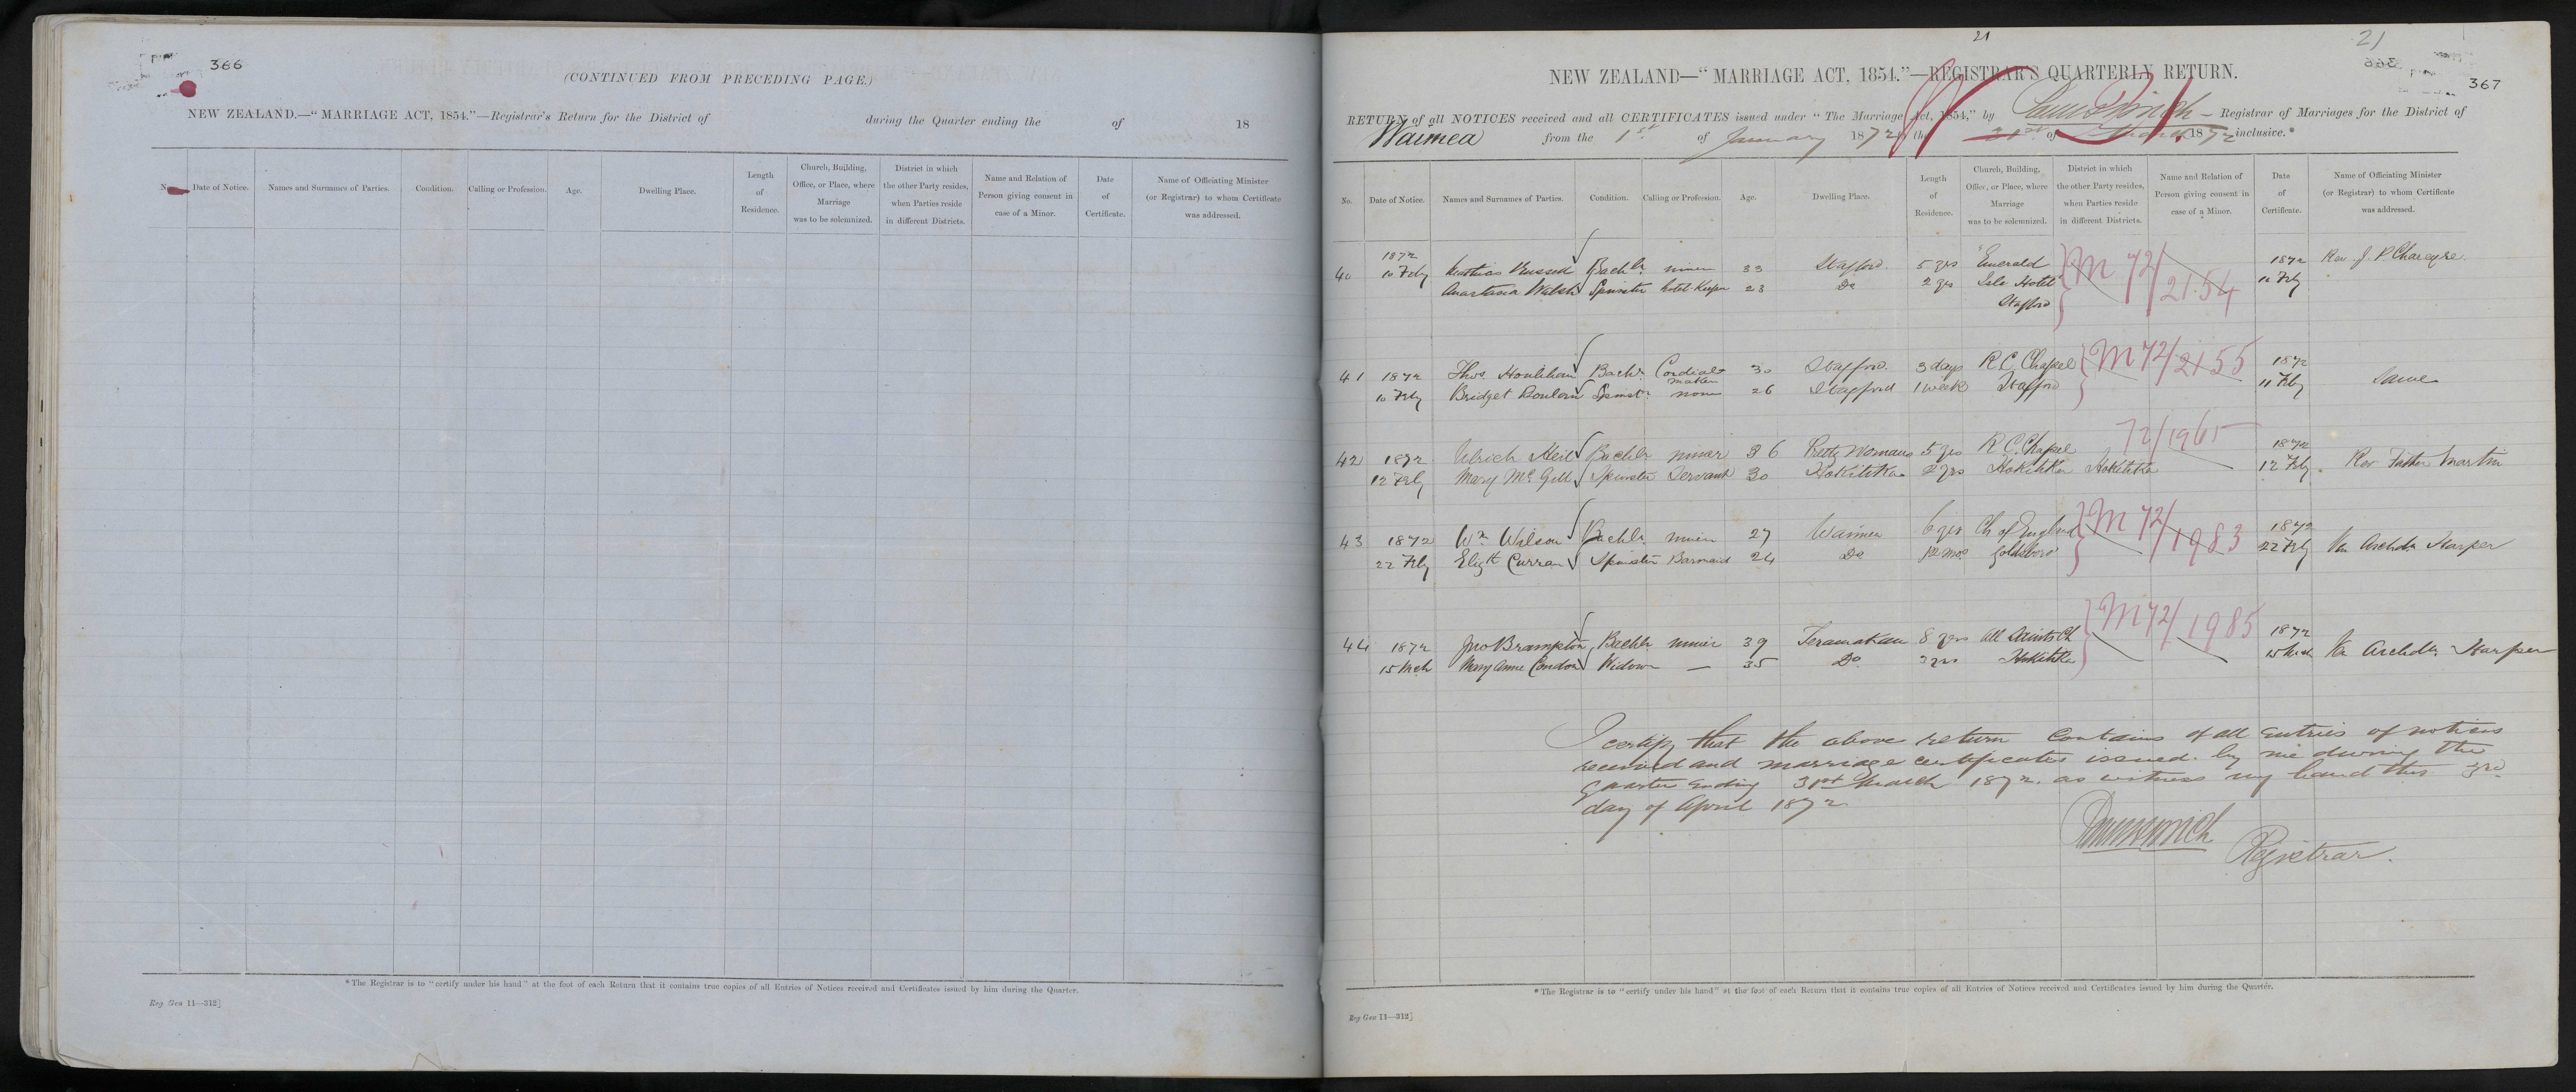 366
(CONTINUED FROM PRECEDING PAGE.)
NEW ZEALAND.—"MARRIAGE ACT, 1854."—Registrar's Return for the District of during the Quarter ending the of 18
No. Date of Notice. Names and Surnames of Parties. Condition. Calling or Profession. Age. Dwelling Place. Length of Residence. Church, Building, Office, or Place, where Marriage was to be solemnized. District in which the other Party resides, when Parties reside in different Districts. Name and Relation of Person giving consent in case of a Minor. Date of Certificate. Name of Officiating Minister (or Registrar) to whom Certificate was addressed.
*The Registrar is to "certify under his hand" at the foot of each Return that it contains true copies of all Entries of Notices received and Certificates issued by him during the Quarter.
Reg Gen 11—312]
21
21
367
NEW ZEALAND—"MARRIAGE ACT, 1854."—REGISTRAR'S QUARTERLY RETURN.
RETURN of all NOTICES received and all CERTIFICATES issued under "The Marriage Act, 1854," by Registrar of Marriages for the District of
Waimea from the 1st of January 1872 to the 31st of March 1872 inclusive.*
No. Date of Notice. Names and Surnames of Parties. Condition. Calling or Profession. Age. Dwelling Place. Length of Residence. Church, Building, Office, or Place, where Marriage was to be solemnized. District in which the other Party resides, when Parties reside in different Districts. Name and Relation of Person giving consent in case of a Minor. Date of Certificate. Name of Officiating Minister (or Registrar) to whom Certificate was addressed.
40 1872 10 Feby Bachlr miner 33 Stafford 5 yrs Emerald M 72/2154 1872 11 Feby Rev. J. P. Chareyre
Anastasia Walsh Spinster hotel Keeper 23 Do 2 yrs Isle Hotel
Stafford
41 1872 Thos Houlihan Bachr Cordial maker 30 Stafford 3 days R C Chapel M 72/2155 1872
10 Feby Bridget Spinst. none 26 Stafford 1 week Stafford 11 Feby Same
42 1872 Ulrich Bachlr miner 36 Pretty Womans 5 yrs R C Chapel 72/1965 1872
12 Feby Mary McGill Spinster Servant 30 Hokitika 2 yrs Hokitika Hokitika 12 Feby Rev Father Martin
43 1872 Wm Wilson Bachlr miner 27 Waimea 6 yrs Ch of England M 72/1983 1872
22 Feby Elizth Curran Spinster Barmaid 24 Do 12 mos Goldsboro 22 Feby Ven Archdn Harper
44 1872 Jno Brampton Bachlr miner 39 Teramakau 8 yrs All Saints Ch M 72/1985 1872
15 Mch Mary Anne Condon Widow — 35 Do 3 yrs Hokitika 15 Mch Ven Archdn Harper
I certify that the above return contains of all entries of notices
received and marriage certificates issued by me during the
quarter ending 31st March 1872. as witness my hand this 3rd
day of April 1872
Registrar.
*The Registrar is to "certify under his hand" at the foot of each Return that it contains true copies of all Entries of Notices received and Certificates issued by him during the Quarter.
Reg Gen 11—312]